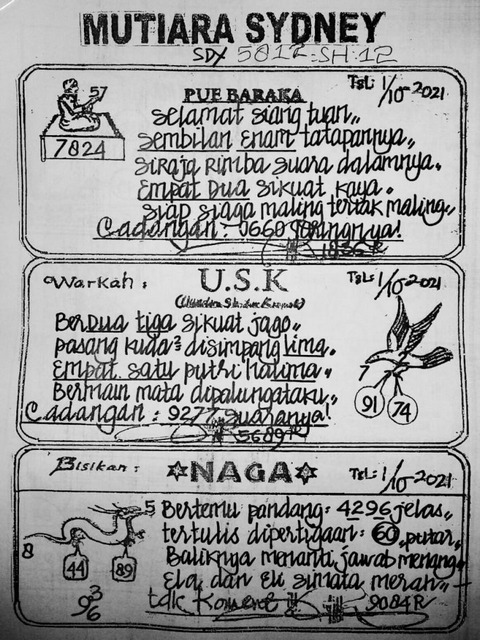 MUTIARA SYDNEY
SDY 5812-SH:12
57
7824
PUE BARAKA
Tgl: 1/10-2021
Selamat siang tuan,,
Sembilan enam tatapannya,,
Siraja rimba suara dalamnya.
Empat Dua sikuat kaya.
Siap siaga maling teriak maling,,
Cadangan: 0660
Warkah:
U.S.K
Tgl: 1/10-2021
Berdua tiga sikuat jago,,
pasang kuda² disimpang lima.
Empat satu putri halima.
Bermain mata dipalungataku,,
Cadangan: 9277 suaranya!
5689 R
7
91
74
Bisikan:
NAGA
Tgl: 1/10-2021
5
8
44
89
3
9
6
Bertemu pandang: 4296 jelas,,
tertulis dipertigaan: 60, putar,,
Baliknya menanti, jawab menang,,
Ela dan Eli simata merah
9084R